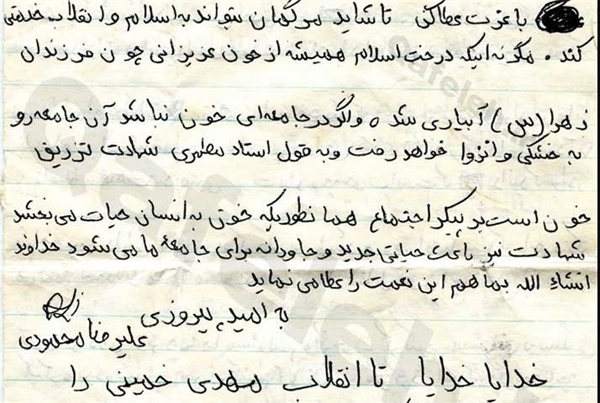 با عزت عطا کنی تا شاید مرگمان بتواند به اسلام و انقلاب خدمتی
کند. مگر نه اینکه درخت اسلام همیشه از خون عزیزانی چون فرزندان
زهرا (س) آبیاری شده و اگر در جامعه‌ای خون نباشد آن جامعه رو
به خشکی و انزوا خواهد رفت و به قول استاد مطهری شهادت تزریق
خون است بر پیکر اجتماع همانطوریکه خون به انسان حیات می‌بخشد
شهادت نیز باعث حیاتی جدید و جاودانه برای جامعهٔ ما می‌شود خداوند
انشاء الله بما هم این نعمت را عطا می‌نماید
به امید پیروزی
علیرضا محمودی
خدایا خدایا تا انقلاب مهدی خمینی را
Qafeleh